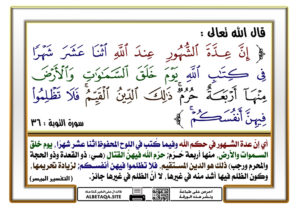 قال الله تعالى :
﴿ إِنَّ عِدَّةَ ٱلشُّهُورِ عِندَ ٱللَّهِ ٱثْنَا عَشَرَ شَهْرًا
فِى كِتَٰبِ ٱللَّهِ يَوْمَ خَلَقَ ٱلسَّمَٰوَٰتِ وَٱلْأَرْضَ
مِنْهَآ أَرْبَعَةٌ حُرُمٌ ۚ ذَٰلِكَ ٱلدِّينُ ٱلْقَيِّمُ ۚ فَلَا تَظْلِمُوا۟
فِيهِنَّ أَنفُسَكُمْ ﴾
سورة التوبة : ٣٦
أي إن عدة الشهور في حكم الله وفيما كتب في اللوح المحفوظ اثنا عشر شهرًا، يوم خلق
السموات والأرض، منها أربعة حُرُم؛ حرَّم الله فيهن القتال (هي: ذو القعدة وذو الحجة
والمحرم ورجب) ذلك هو الدين المستقيم، فلا تظلموا فيهن أنفسكم؛ لزيادة تحريمها،
وكون الظلم فيها أشد منه في غيرها، لا أنَّ الظلم في غيرها جائز.
( التفسير الميسر )
ALBETAQA.SITE